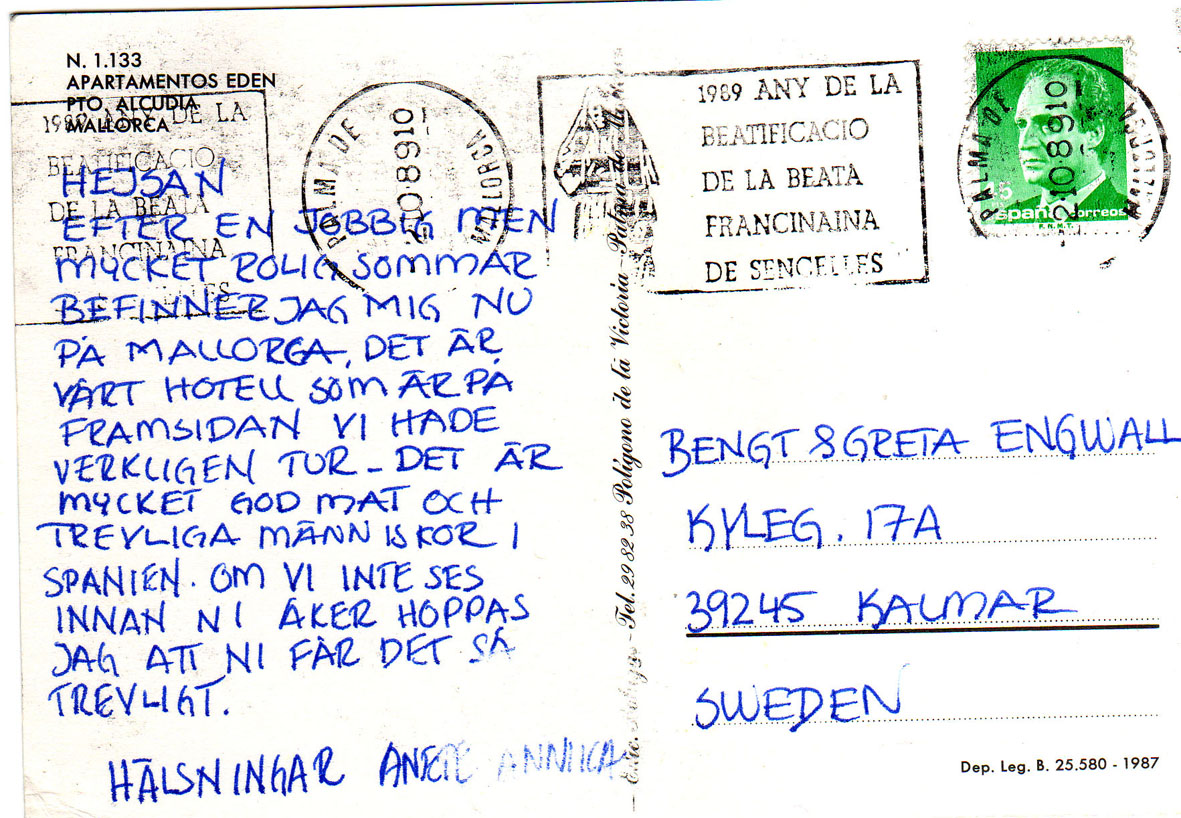 N. 1.133
APARTAMENTOS EDEN
PTO. ALCUDIA
MALLORCA
1989 ANY DE LA
BEATIFICACIO
DE LA BEATA
FRANCINAINA
PALMA DE MALLORCA
210 8910
1989 ANY DE LA
BEATIFICACIO
DE LA BEATA
FRANCINAINA
DE SENCELLES
PALMA DE MALLORCA
210 8910
España correos
F.N.M.T.
HEJSAN
EFTER EN JOBBIG MEN
MYCKET ROLIG SOMMAR
BEFINNER JAG MIG NU
PÅ MALLORCA, DET ÄR
VÅRT HOTELL SOM ÄR PÅ
FRAMSIDAN VI HADE
VERKLIGEN TUR - DET ÄR
MYCKET GOD MAT OCH
TREVLIGA MÄNNISKOR I
SPANIEN. OM VI INTE SES
INNAN NI ÅKER HOPPAS
JAG ATT NI FÅR DET SÅ
TREVLIGT.
HÄLSNINGAR ANNICA
Tel. 29 82 38 Polígono de la Victoria - Palma de
BENGT & GRETA ENGWALL
KYLEG. 17A
39245 KALMAR
SWEDEN
Dep. Leg. B. 25.580 - 1987